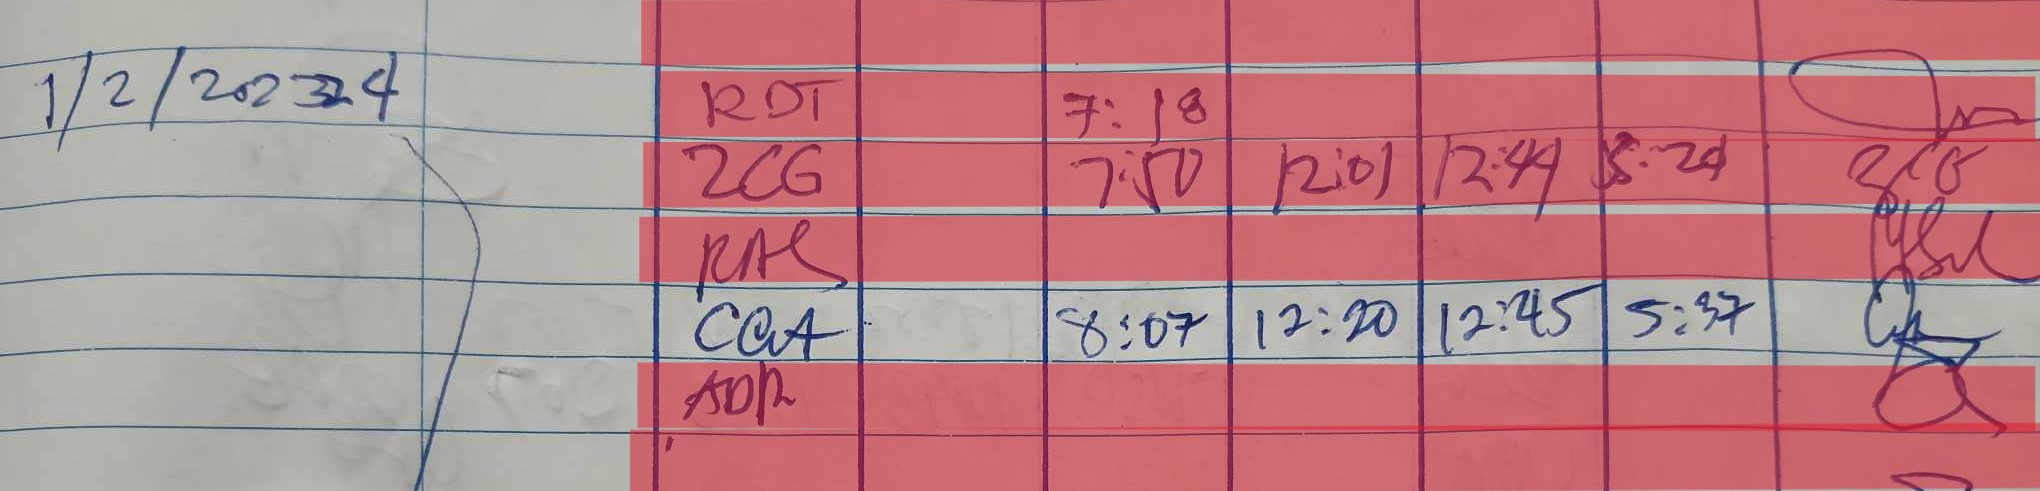 1/2/2024
RDT 7:18
ZCG 7:50 12:01 12:44 5:24
RAS
CQA 8:07 12:20 12:45 5:37
ADR